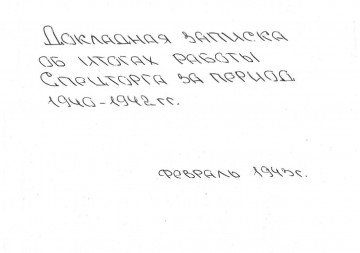 Докладная записка
об итогах работы
Спецторга за период
1940-1942 гг.
февраль 1943г.